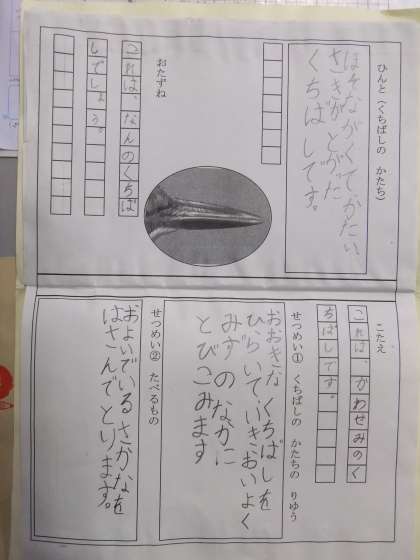 ひんと（くちばしの　かたち）
ほそながくてかたい、
さきが とがった
くちばしです。
おたずね
これは、なんのくちば
しでしょう。
こたえ
これは、かわせみのく
ちばしです。
せつめい①　くちばしの　かたちの　りゆう
おおきな くちばしを
ひらいていきおいよく
みずのなかに
とびこみます
せつめい②　たべるもの
およいでいる さかなを
はさんでとります。